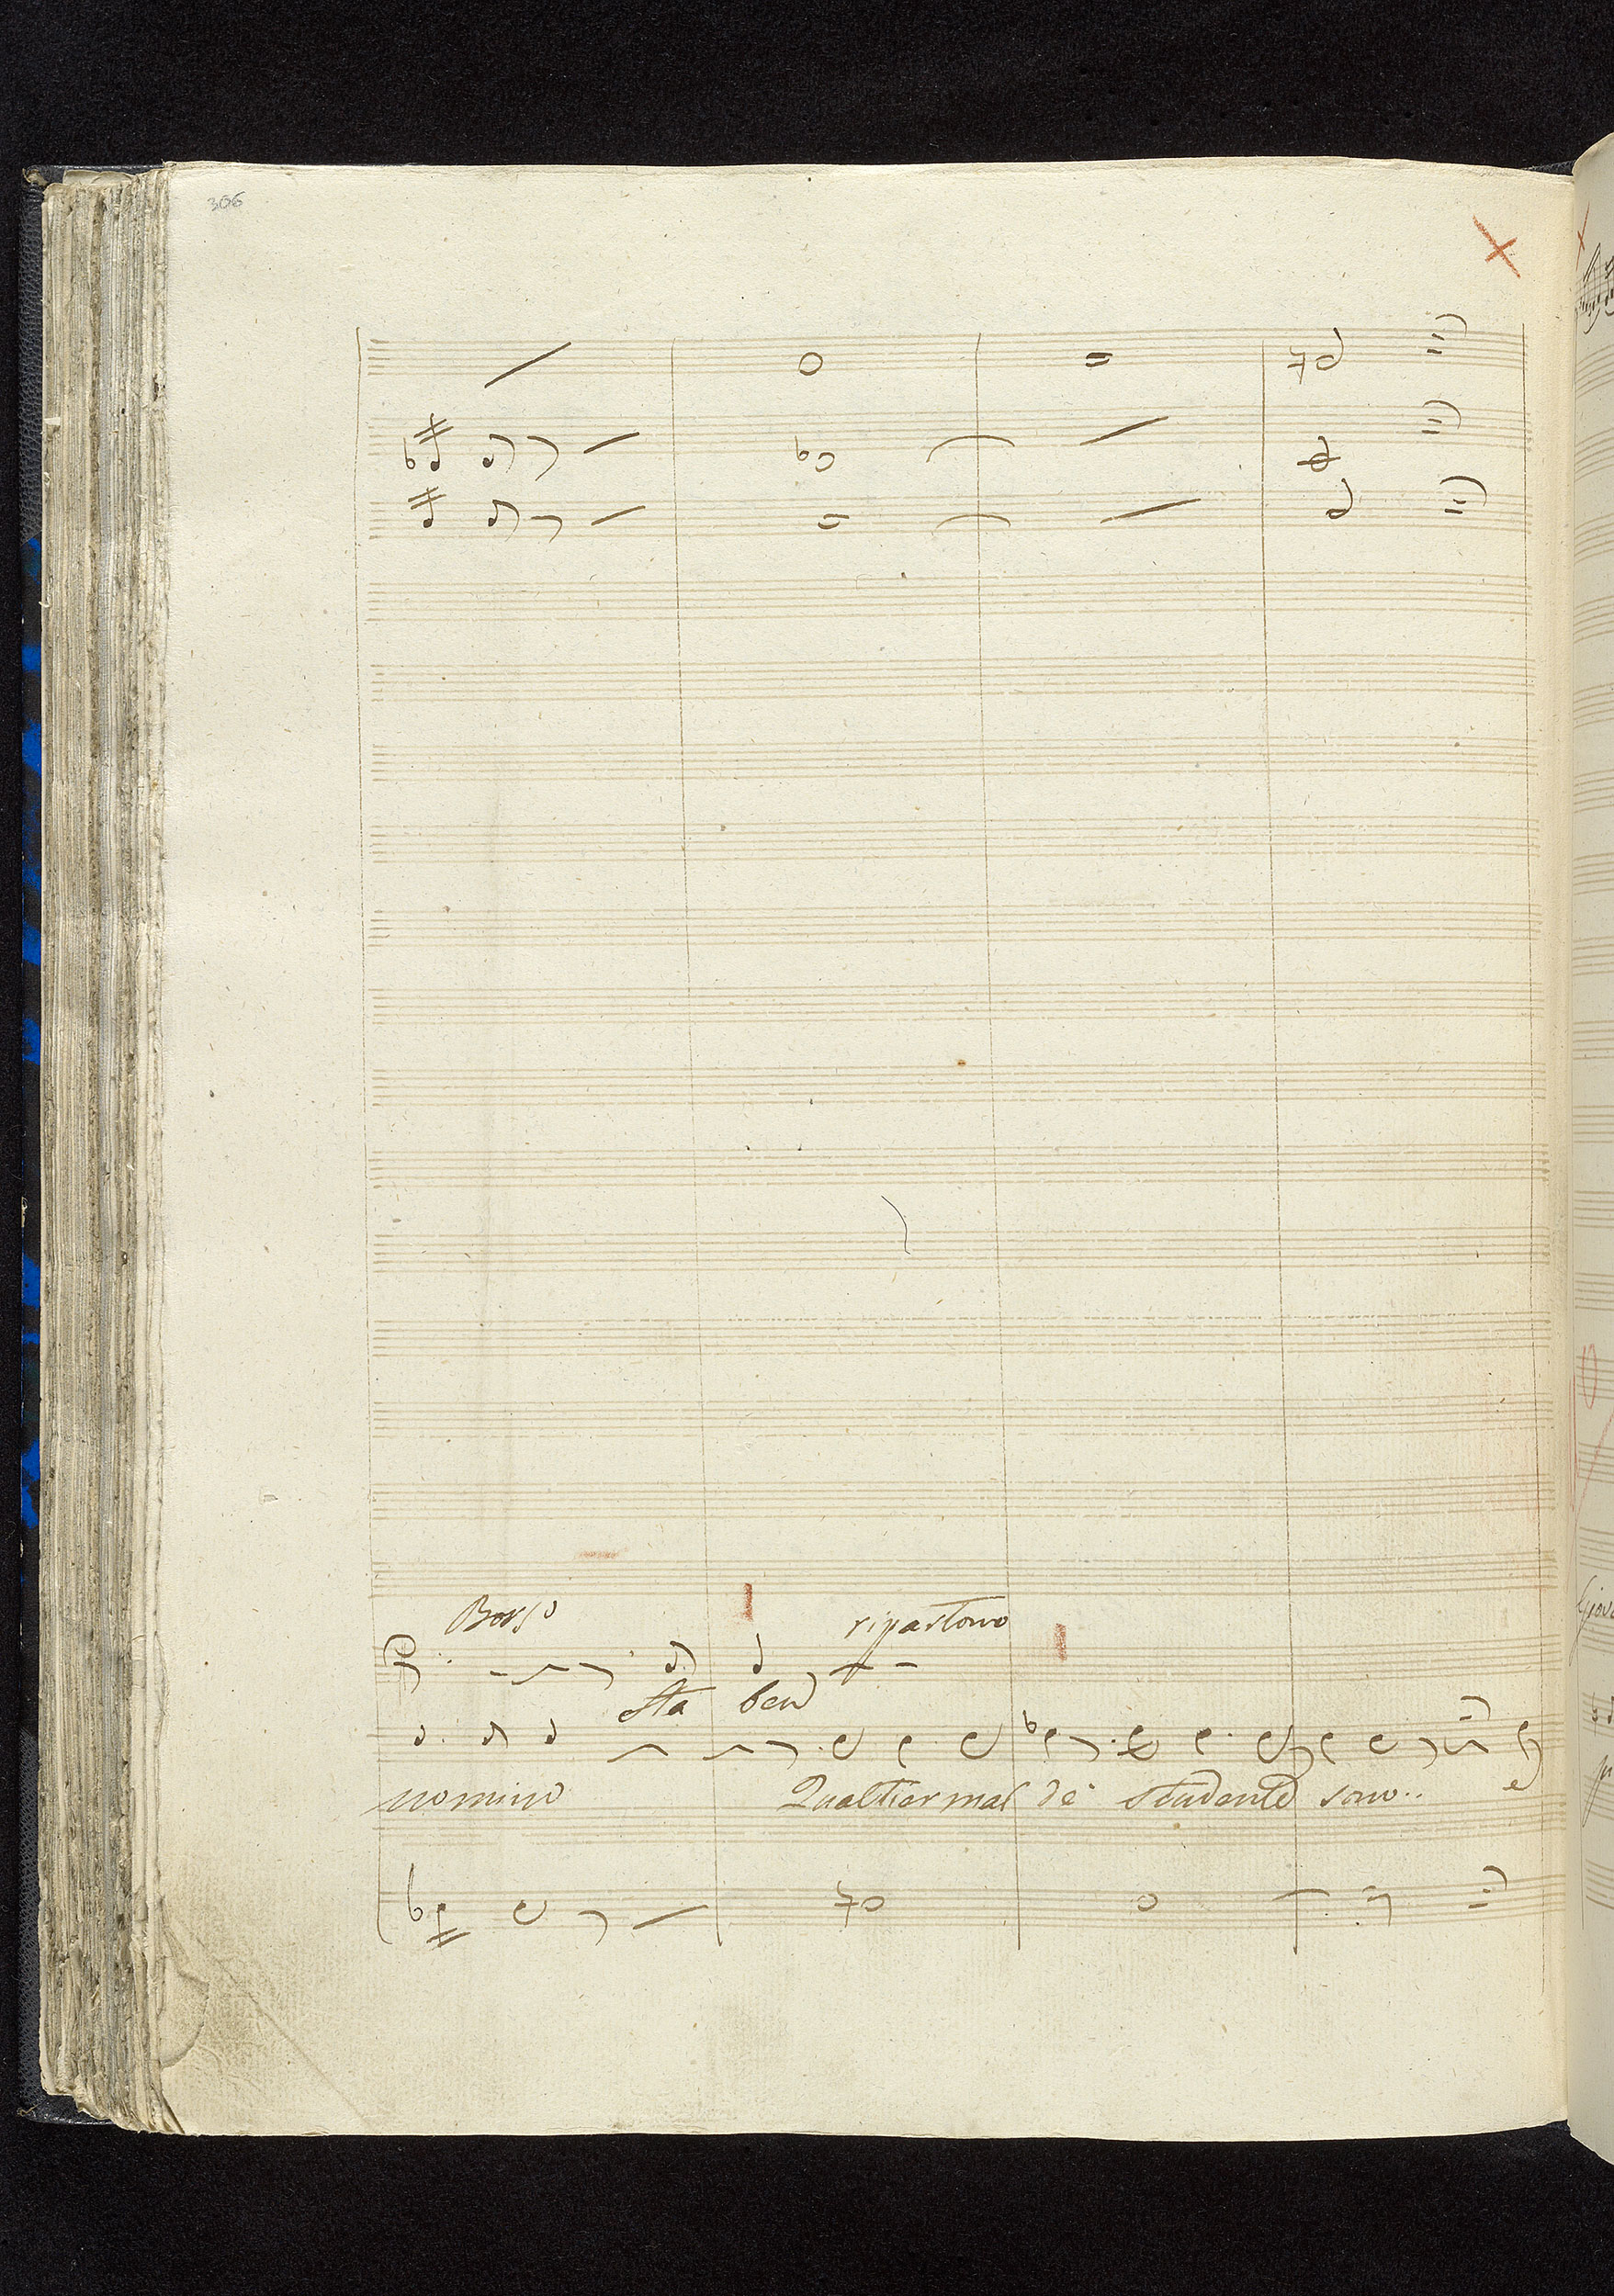 306
Borso
ripartono
Sta ben
nomino Qualtier mal dé studente sono.. e